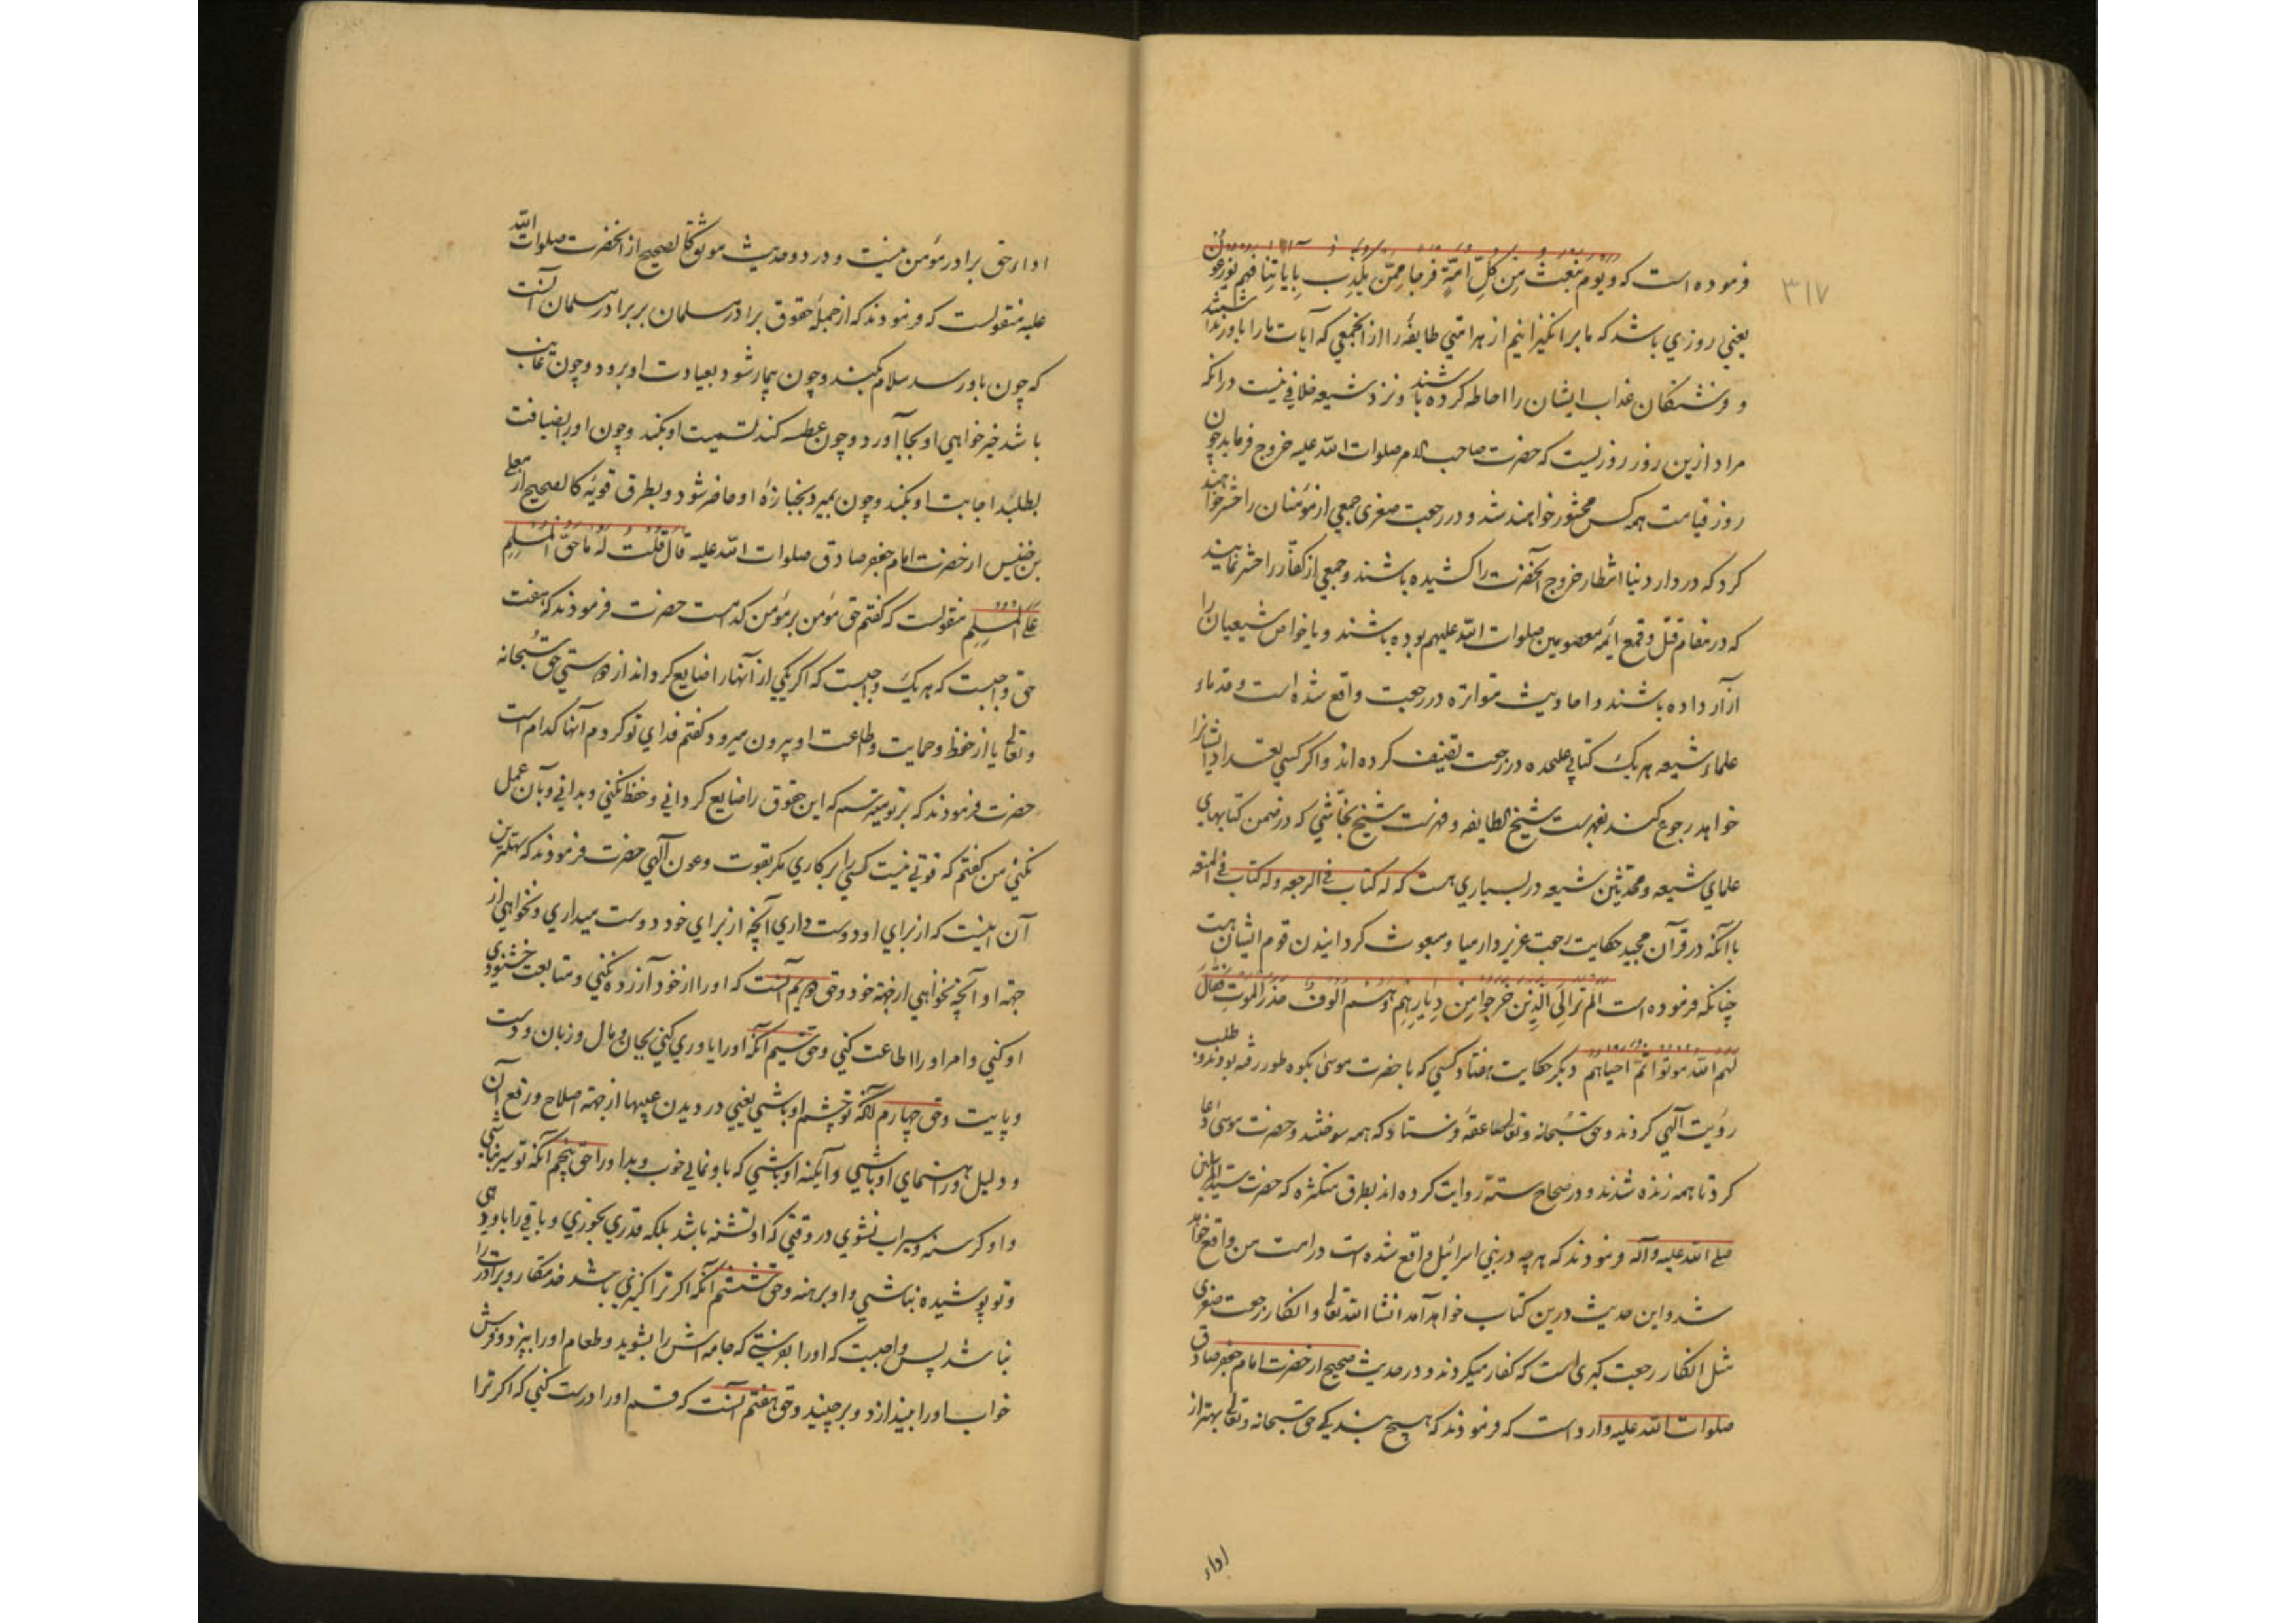 ۳۱۷
فرموده است که و یوم نبعث من کلّ امّةٍ فوجا ممّن یکذب بایاتنا فهم یوزعون
یعنی روزي باشد که ما بر انکیزانیم از هر امتي طایفهٔ را از انجمعي که آیات ما را باور نداشتند
و فرشتکان عذاب ایشان را احاطه کرده باشند و نزد شیعه خلافی نیست در انکه
مراد ازین روز روزیست که حضرت صاحب الامر صلوات الله علیه خروج فرماید چون
روز قیامت همه کس محشور خواهند شد و در رجعت صغری جمعي از مؤمنان را حشر خواهند
کرد که در دار دنیا انتظار خروج آنحضرت را کشیده باشند و جمعي از کفّار را حشر نمایند
که در مقام قتل و قمع ائمه معصومین صلوات الله علیهم بوده باشند و یا خواص شیعیان را
آزار داده باشند و احادیث متواتره در رجعت واقع شده است و قدماء
علماء شیعه هر یک کتابي علیحده در رجعت تصنیف کرده اند و اکر کسي تعداد ایشانرا
خواهد رجوع کند بفهرست شیخ الطایفه و فهرست شیخ نجّاشي که در ضمن کتابهاي
علماي شیعه و محدّثین شیعه در بسیاري هست که له کتاب في الرجعه و له کتاب في المتعه
با آنکه در قرآن مجید حکایت رجعت عزیر و ارمیا و مبعوث کردانیدن قوم ایشان هست
چنانکه فرموده است الم تر الی الذین خرجوا من دیارهم و هم الوفٌ حذر الموت فقال
لهم الله موتوا ثمّ احیاهم دیکر حکایت هفتاد کسي که با حضرت موسی بکوه طور رفته بودند و طلب
رؤیت آلهي کردند و حق سُبحانه و تعالی صاعقهٔ فرستاد که همه سوختند و حضرت موسی دعا
کرد تا همه زنده شدند و در صحاح ستّه روایت کرده اند بطرق متکثره که حضرت سید المرسلین
صلی الله علیه و آله فرمودند که هر چه در بني اسرائیل واقع شده است در امت من واقع خواهد
شد و این حدیث درین کتاب خواهد آمد انشا الله تعالی و انکار رجعت صغری
مثل انکار رجعت کبری است که کفار میکردند و در حدیث صحیح از حضرت امام جعفر صادق
صلوات الله علیه وارد است که فرمودند که هیچ بندکي حق سبحانه و تعالی بهتر از
اداء
اداء حق برادر مؤمن نیست و در دو حدیث موثق کالصحیح از انحضرت صلوات الله
علیه منقولست که فرمودند که از جملهٔ حقوق برادر مسلمان بر برادر مسلمان آنست
که چون باو رسد سلام کند و چون بیمار شود بعیادت او برود و چون غایب
باشد خیر خواهي او بجا آورد و چون عطسه کند تسمیت او بکند و چون او را بضیافت
بطلبد اجابت او بکند و چون بمیرد بجنازهٔ او حاضر شود و بطرق قویّه کالصحیح از معلی
بن خنیس از حضرت امام جعفر صادق صلوات الله علیه قال قلت له ما حقّ المسلم
علی المسلم منقولست که کفتم حق مؤمن بر مؤمن کدامست حضرت فرمودند که هفت
حق واجبست که هر یک واجبست که اکر یکي از آنها را ضایع کرداند از دوستي حق سُبحانه
و تعالی یا از حفظ و حمایت و طاعت او بیرون میرود کفتم فداي تو کردم آنها کدام است
حضرت فرمودند که بر تو میترسم که این حقوق را ضایع کرداني و حفظ نکني و بداني و بآن عمل
نکني من کفتم که قوتي نیست کسي را بر کاري مکر بقوت و عون آلهي حضرت فرمودند که سهلترین
آن اینست که از براي او دوست داري آنچه از براي خود دوست میداري و نخواهي از
جهة او آنچه نخواهي از جهة خود و حق دویم آنست که او را از خود آزرده نکني و متابعت خشنودي
او کني و امر او را اطاعت کني و حق سیم آنکه او را یاوري کني بجان و مال و زبان و دست
و پایت و حق چهارم آنکه تو چشم او باشي یعني در دیدن عیبها از جهة اصلاح و رفع آن
و دلیل و راهنماي او باشي و آیینه او باشي که باو نمایي خوب و بد او را حق پنجم آنکه تو سیر نباشي
و او کرسنه و سیراب نشوي در وقتي که او تشنه باشد بلکه قدري بخوري و باقي را باو دهي
و تو پوشیده نباشي و او برهنه و حق ششم آنکه اکر ترا کنیزي باشد خدمتکار و برادرت را
نباشد پس واجبست که او را بفرستي که جامه اش را بشوید و طعام او را بپزد و فرش
خواب او را بیندازد و برچیند و حق هفتم آنست که قسم او را درست کني که اکر ترا